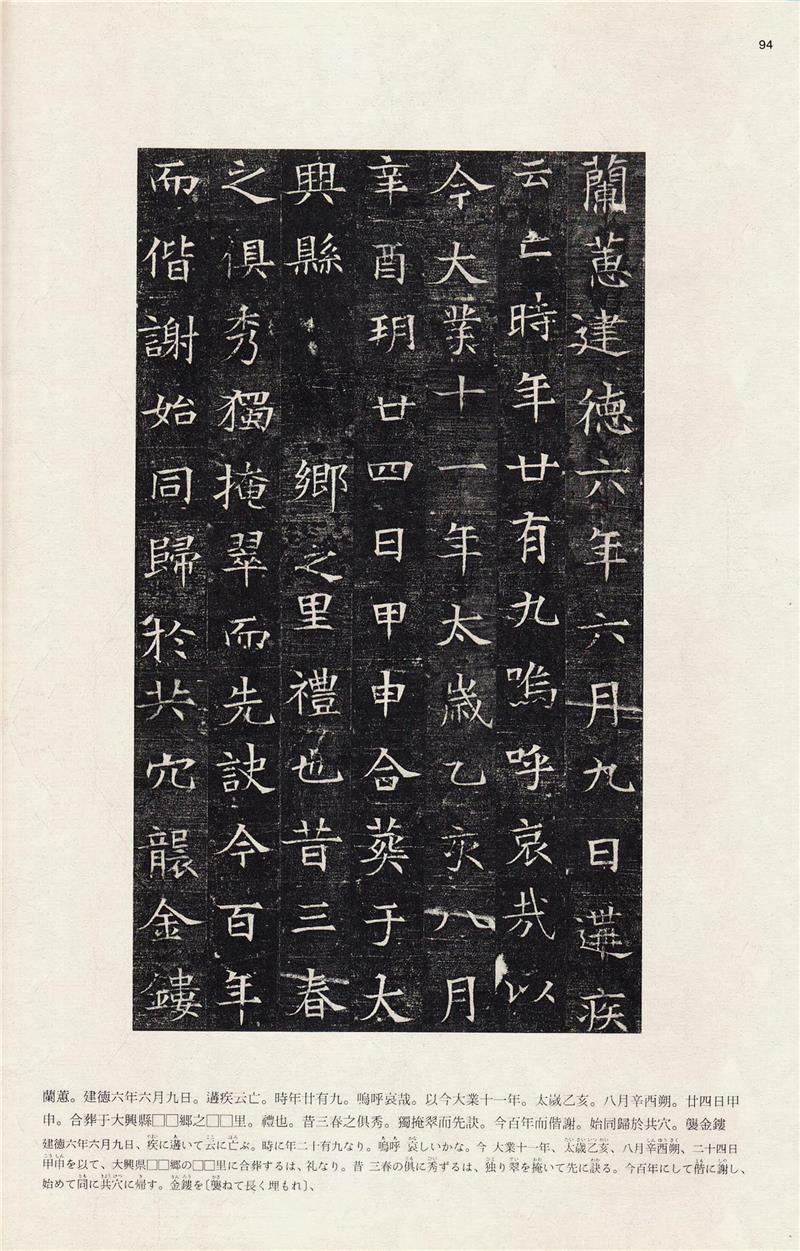 94
蘭蕙建德六年六月九日遘疾
云亡時年廿有九嗚呼哀哉以
今大業十一年太歲乙亥八月
辛酉朔廿四日甲申合葬于大
興縣鄉之里禮也昔三春
之俱秀獨掩翠而先訣今百年
而偕謝始同歸於共穴襲金鏤
蘭蕙。建德六年六月九日。遘疾云亡。時年廿有九。嗚呼哀哉。以今大業十一年。太歲乙亥。八月辛酉朔。廿四日甲
申。合葬于大興縣□□鄉之□□里。禮也。昔三春之俱秀。獨掩翠而先訣。今百年而偕謝。始同歸於共穴。襲金鏤
建徳六年六月九日、疾に遘いて云に亡ぶ。時に年二十有九なり。嗚呼 哀しいかな。今 大業十一年、太歳乙亥、八月辛酉朔、二十四日
甲申を以て、大興県□□郷の□□里に合葬するは、礼なり。昔 三春の俱に秀ずるは、独り翠を掩いて先に訣る。今百年にして偕に謝し、
始めて同に共穴に帰す。金鏤を〔襲ねて長く埋もれ〕、